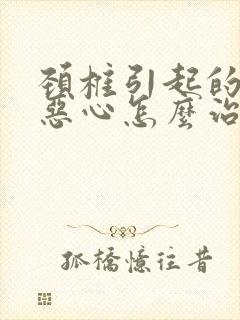 頚椎引起的
惡心怎麼治
孤橋憶往昔